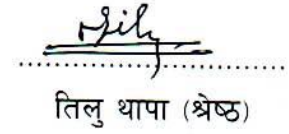 तिलु थापा (श्रेष्ठ)